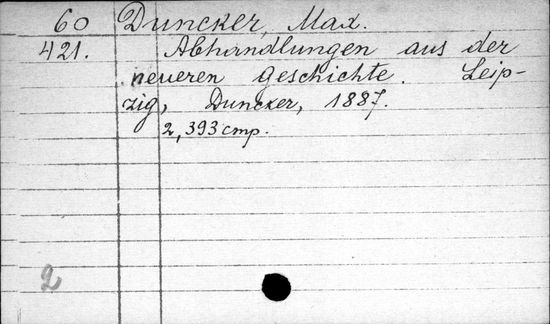 60 Duncker, Max.
421. Abhandlungen aus der
neueren Geschichte. Leip-
zig, Duncker, 1887.
2, 393 cmp.
2